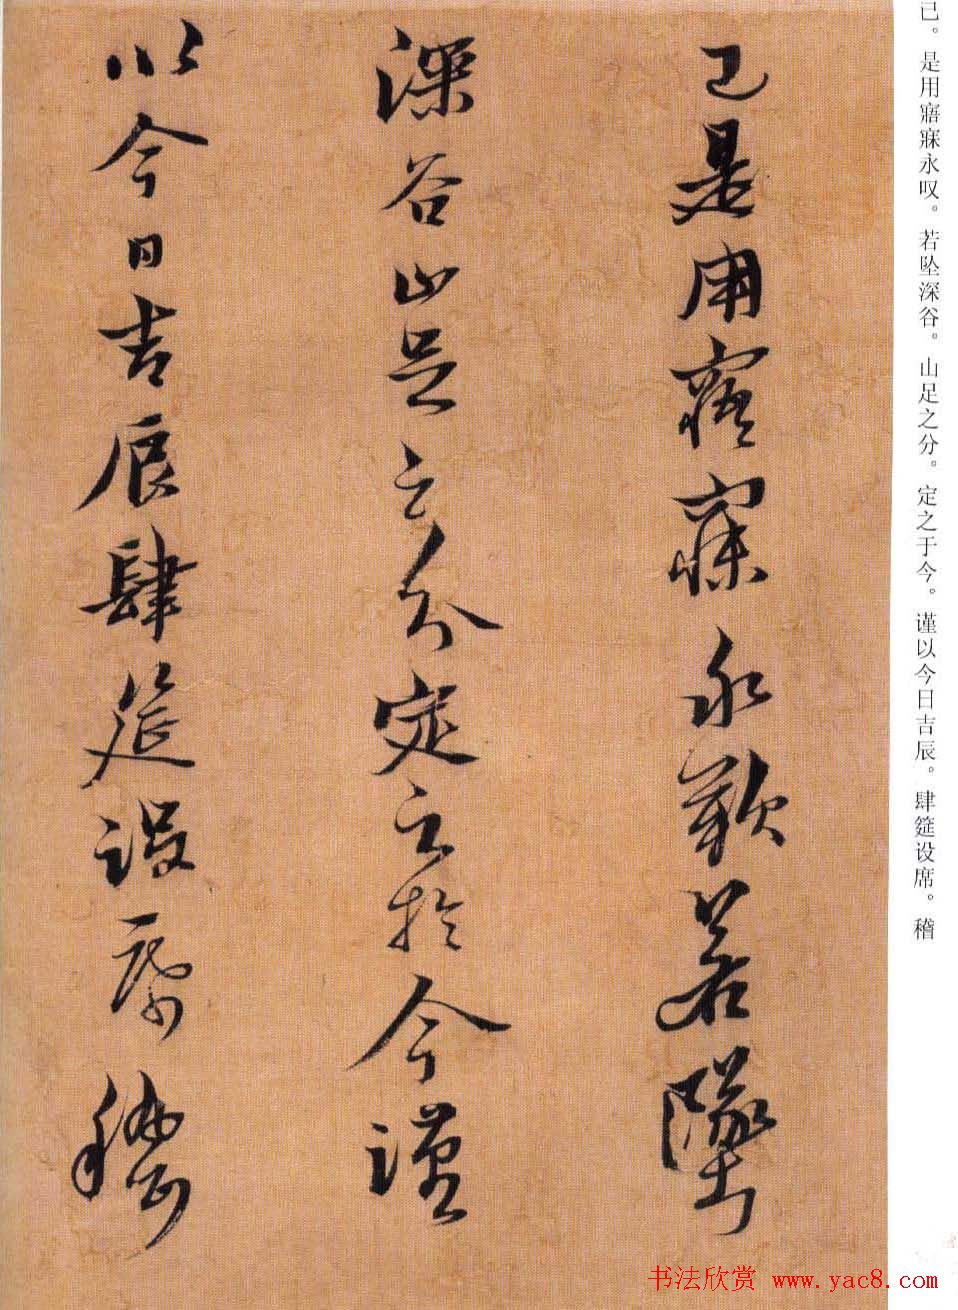 已是用寤寐永歎若墜
深谷山足之分定之於今謹
以今日吉辰肆筵設席稽
已。是用寤寐永叹。若坠深谷。山足之分。定之于今。谨以今日吉辰。肆筵设席。稽
书法欣赏 www.yac8.com